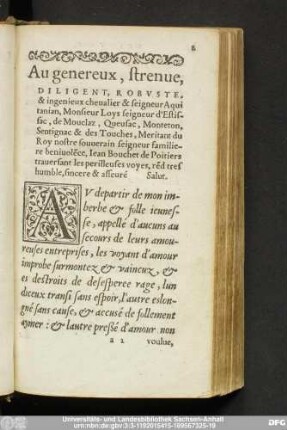 6
Au genereux, strenue,
DILIGENT, ROBVSTE,
& ingenieux cheualier & seigneur Aqui
tanian, Monsieur Loys seigneur d'Estis-
sac, de Monclar, Queusac, Monteton,
Sentignac & des Touches, Meritant du
Roy nostre souuerain seigneur familie-
re beniuolẽce, Iean Bouchet de Poitiers
trauersant les perilleuses voyes, rẽd tres
humble, sincere & asseuré Salut.
AV departir de mon im-
berbe & folle ieunes-
se, appellé d'aucuns au
secours de leurs amou-
reuses entreprises, les voyant d'amour
improbe surmontez & vaincuz, &
es destroits de desesperee rage, l'un
diceux transi sans espoir, l'autre eslon-
gné sans cause, & accusé de follement
aymer : & l'autre pressé d'amour non
a 2 voulue,
Universitäts- und Landesbibliothek Sachsen-Anhalt
urn:nbn:de:gbv:3:3-1192015415-189567325-19
DFG